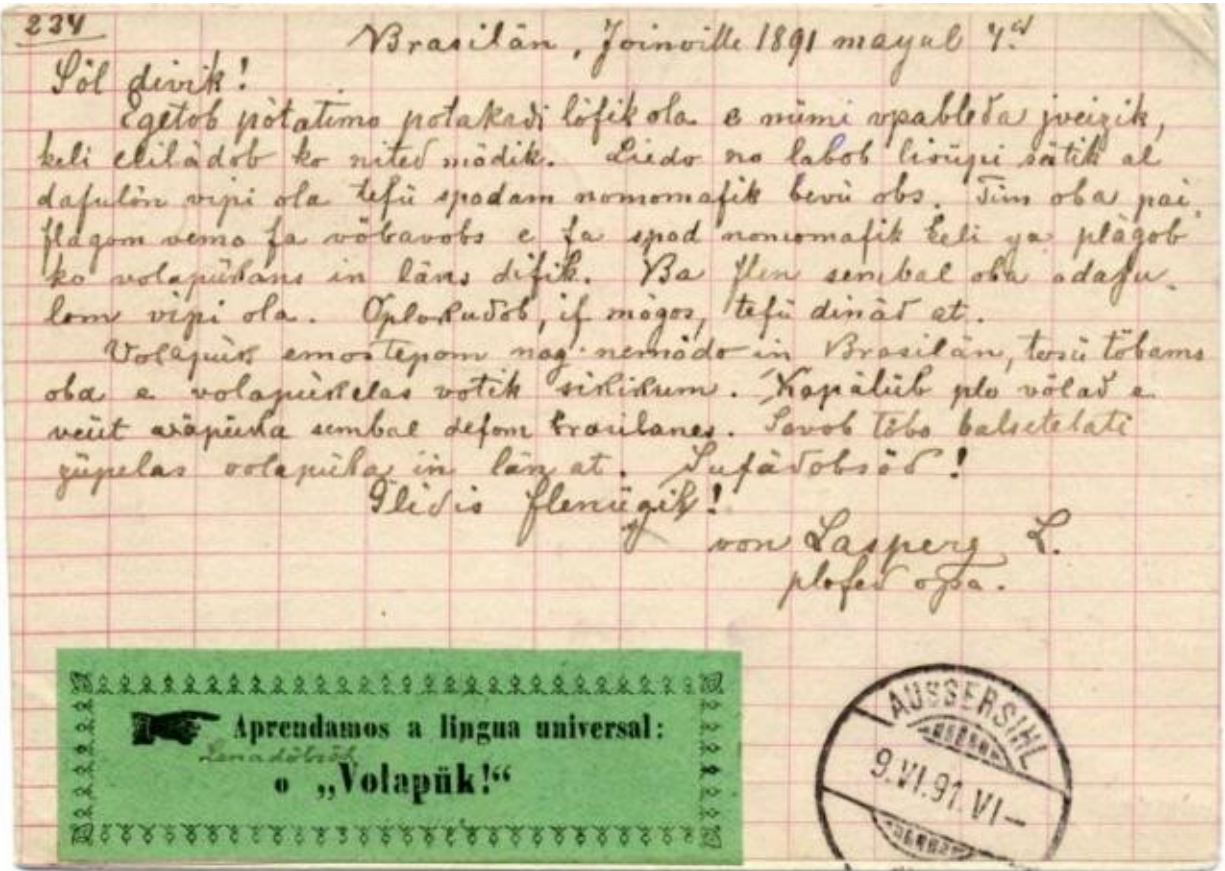 234
Brasilän, Joinville 1891 mayul 4id
Söl divik!
Egetob pötatimo potakadi löfik ola e nümi vpableda jveizik,
keli elilädob ko nited mödik. Liedo no labob lioüpi sätik al
dafulön vipi ola tefü spodam nomomafik bevü obs. Tim oba pai
flagom vemo fa vobavobs e fa spod nomomafik keli ya plägob
ko volapükans in läns difik. Ba flen sembal oba odafu-
lom vipi ola. Oplokudob, if mögos, tefü dinäd at.
Volapük emostepom nog nemödo in Brasilän, tosü töbams
oba e volapükelas votik sikikum. Kapälüb plo völad e
veüt väpüka sembal defom brasilanes. Lovob töbo balsetelati
yüpelas volapüka in län at. Lufädobsöd!
Glidis flenügik!
von Lasperg L.
plofed opa.
Aprendamos a lingua universal:
Lenadöbsöd
o „Volapük!“
AUSSERSIHL
9.VI.91.VI–